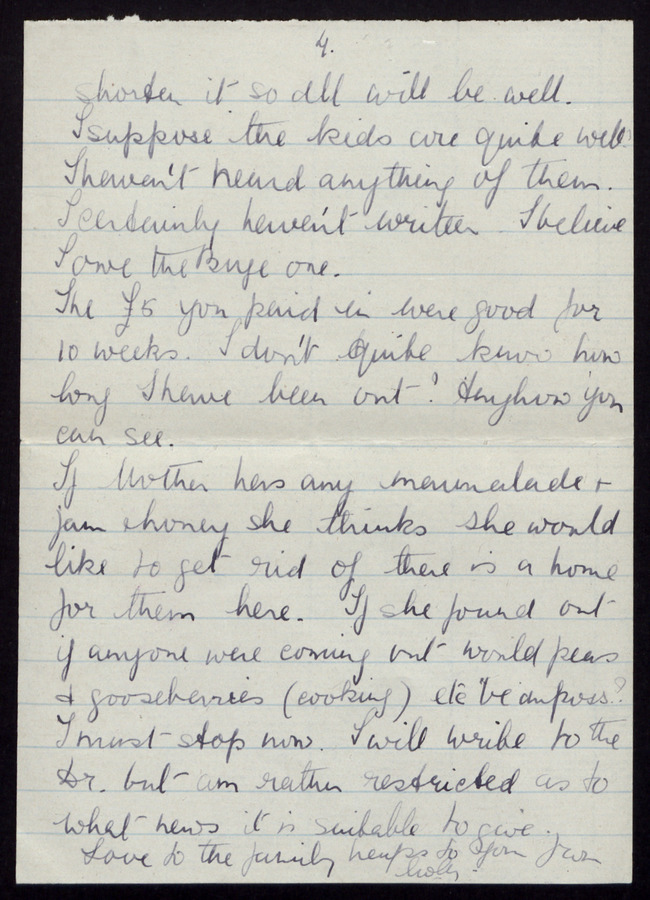 4.
shorten it so all will be well.
I suppose the kids are quite well
I haven't heard anything of them.
I certainly haven't written. I believe
I owe the one.
The £5 you paid in were good for
10 weeks. I don't quite know how
long I have been out? Anyhow you
can see.
If Mother has any marmalade +
jam honey she thinks she would
like to get rid of there is a home
for them here. If she found out
if anyone were coming out would pears
& gooseberries (cooking) etc be
I must stop now. I will write to the
Dr. but am rather restricted as to
what news it is suitable to give.
Love to the family heaps to you